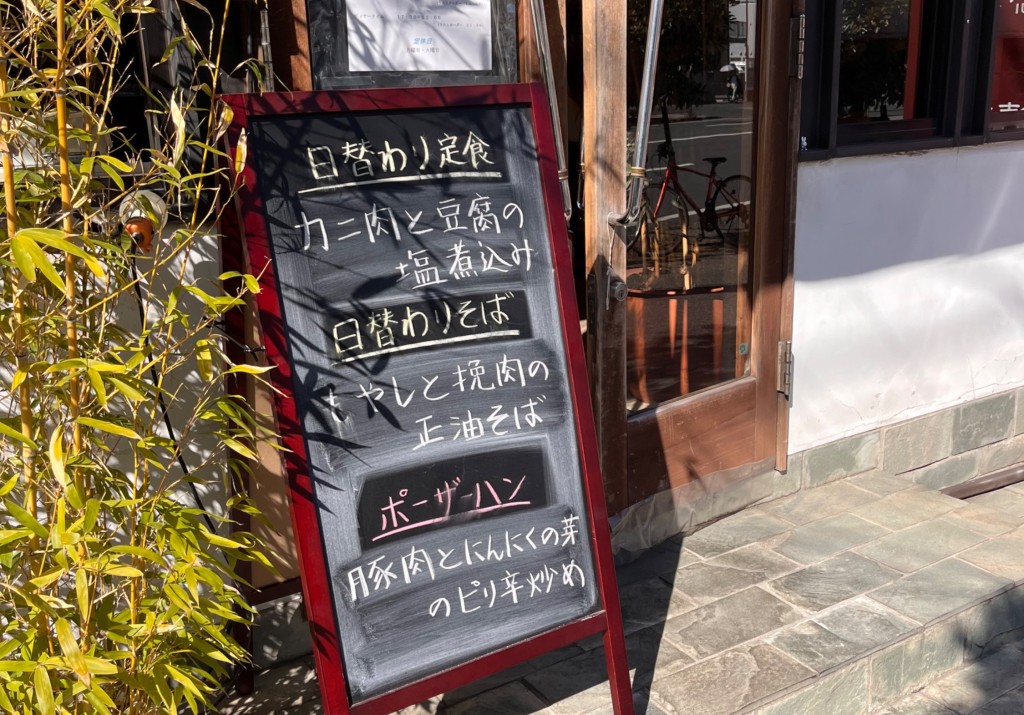 定休日
日替わり定食
カニ肉と豆腐の
塩煮込み
日替わりそば
もやしと挽肉の
正油そば
ポーザーハン
豚肉とにんにくの芽
のピリ辛炒め